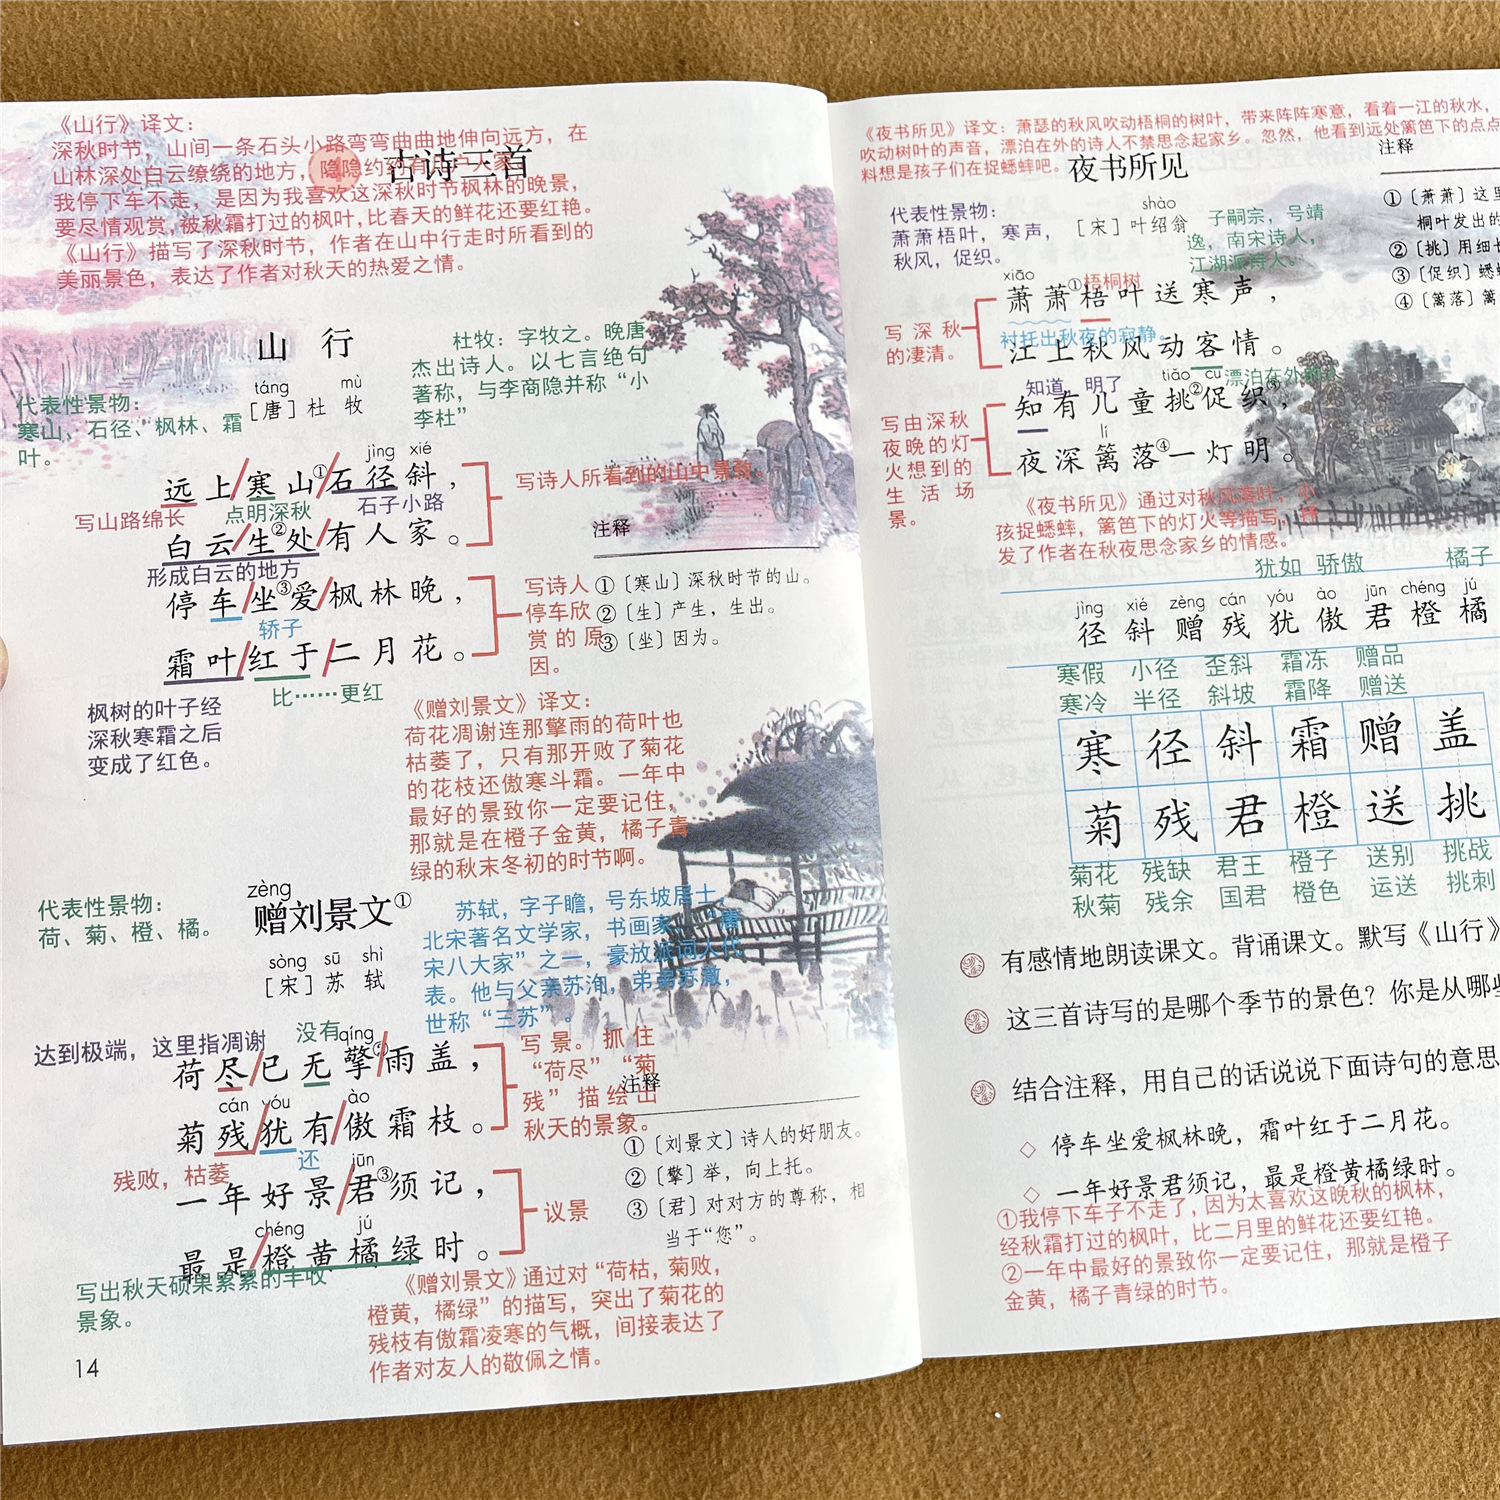 《山行》译文：
深秋时节，山间一条石头小路弯弯曲曲地伸向远方，在
山林深处白云缭绕的地方，隐隐约约有几户人家。
我停下车不走，是因为我喜欢这深秋时节枫林的晚景，
要尽情观赏，被秋霜打过的枫叶，比春天的鲜花还要红艳。
《山行》描写了深秋时节，作者在山中行走时所看到的
美丽景色，表达了作者对秋天的热爱之情。
古诗三首
山行
táng mù
［唐］杜牧
杜牧：字牧之。晚唐
杰出诗人。以七言绝句
著称，与李商隐并称“小
李杜”
代表性景物：
寒山、石径、枫林、霜
叶。
jìng xié
远上/寒山①/石径斜，
写山路绵长 点明深秋 石子小路
白云/生②处/有人家。
形成白云的地方
写诗人所看到的山中景象。
停车/坐③爱/枫林晚，
轿子
霜叶/红于/二月花。
比……更红
写诗人
停车欣
赏的原
因。
枫树的叶子经
深秋寒霜之后
变成了红色。
注释
①〔寒山〕深秋时节的山。
②〔生〕产生，生出。
③〔坐〕因为。
《赠刘景文》译文：
荷花凋谢连那擎雨的荷叶也
枯萎了，只有那开败了菊花
的花枝还傲寒斗霜。一年中
最好的景致你一定要记住，
那就是在橙子金黄，橘子青
绿的秋末冬初的时节啊。
代表性景物：
荷、菊、橙、橘。
zèng
赠刘景文①
sòng sū shì
［宋］苏轼
苏轼，字子瞻，号东坡居士，
北宋著名文学家，书画家，“唐
宋八大家”之一，豪放派词人代
表。他与父亲苏洵，弟弟苏澈，
世称“三苏”。
达到极端，这里指凋谢 没有
qíng
荷尽/已无擎②/雨盖，
cán yóu ào
菊残/犹有/傲霜枝。
残败，枯萎 还
写景。抓住
“荷尽”“菊
残”描绘出
秋天的景象。
jūn
一年好景/君③须记，
chéng jú
最是/橙黄橘绿时。
议景
写出秋天硕果累累的丰收
景象。
注释
①〔刘景文〕诗人的好朋友。
②〔擎〕举，向上托。
③〔君〕对对方的尊称，相
当于“您”。
《赠刘景文》通过对“荷枯，菊败，
橙黄，橘绿”的描写，突出了菊花的
残枝有傲霜凌寒的气概，间接表达了
作者对友人的敬佩之情。
14
《夜书所见》译文：萧瑟的秋风吹动梧桐的树叶，带来阵阵寒意，看着一江的秋水，
吹动树叶的声音，漂泊在外的诗人不禁思念起家乡。忽然，他看到远处篱笆下的点点
料想是孩子们在捉蟋蟀吧。
夜书所见
shào
［宋］叶绍翁
代表性景物：
萧萧梧叶，寒声，
秋风，促织。
子嗣宗，号靖
逸，南宋诗人，
江湖派诗人。
注释
①〔萧萧〕这里
桐叶发出的
②〔挑〕用细长
③〔促织〕蟋蟀
④〔篱落〕篱
xiāo
梧桐树
萧萧①梧叶送寒声，
衬托出秋夜的寂静。
江上秋风动客情。
写深秋
的凄清。
知道，明了 漂泊在外
tiǎo cù
知有儿童挑②促织③，
lí
夜深篱落④一灯明。
写由深秋
夜晚的灯
火想到的
生活场
景。
《夜书所见》通过对秋风落叶，小
孩捉蟋蟀，篱笆下的灯火等描写，抒
发了作者在秋夜思念家乡的情感。
犹如 骄傲 橘子
jìng xié zèng cán yóu ào jūn chéng jú
径斜赠残犹傲君橙橘
寒假 小径 歪斜 霜冻 赠品
寒冷 半径 斜坡 霜降 赠送
寒径斜霜赠盖
菊残君橙送挑
菊花 残缺 君王 橙子 送别 挑战
秋菊 残余 国君 橙色 运送 挑刺
有感情地朗读课文。背诵课文。默写《山行》
这三首诗写的是哪个季节的景色？你是从哪些
结合注释，用自己的话说说下面诗句的意思
◇ 停车坐爱枫林晚，霜叶红于二月花。
◇ 一年好景君须记，最是橙黄橘绿时。
①我停下车子不走了，因为太喜欢这晚秋的枫林，
经秋霜打过的枫叶，比二月里的鲜花还要红艳。
②一年中最好的景致你一定要记住，那就是橙子
金黄，橘子青绿的时节。